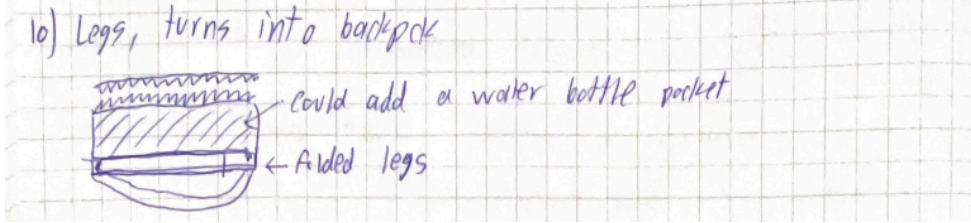 10) Legs, turns into backpck
could add a water bottle pocket
← folded legs